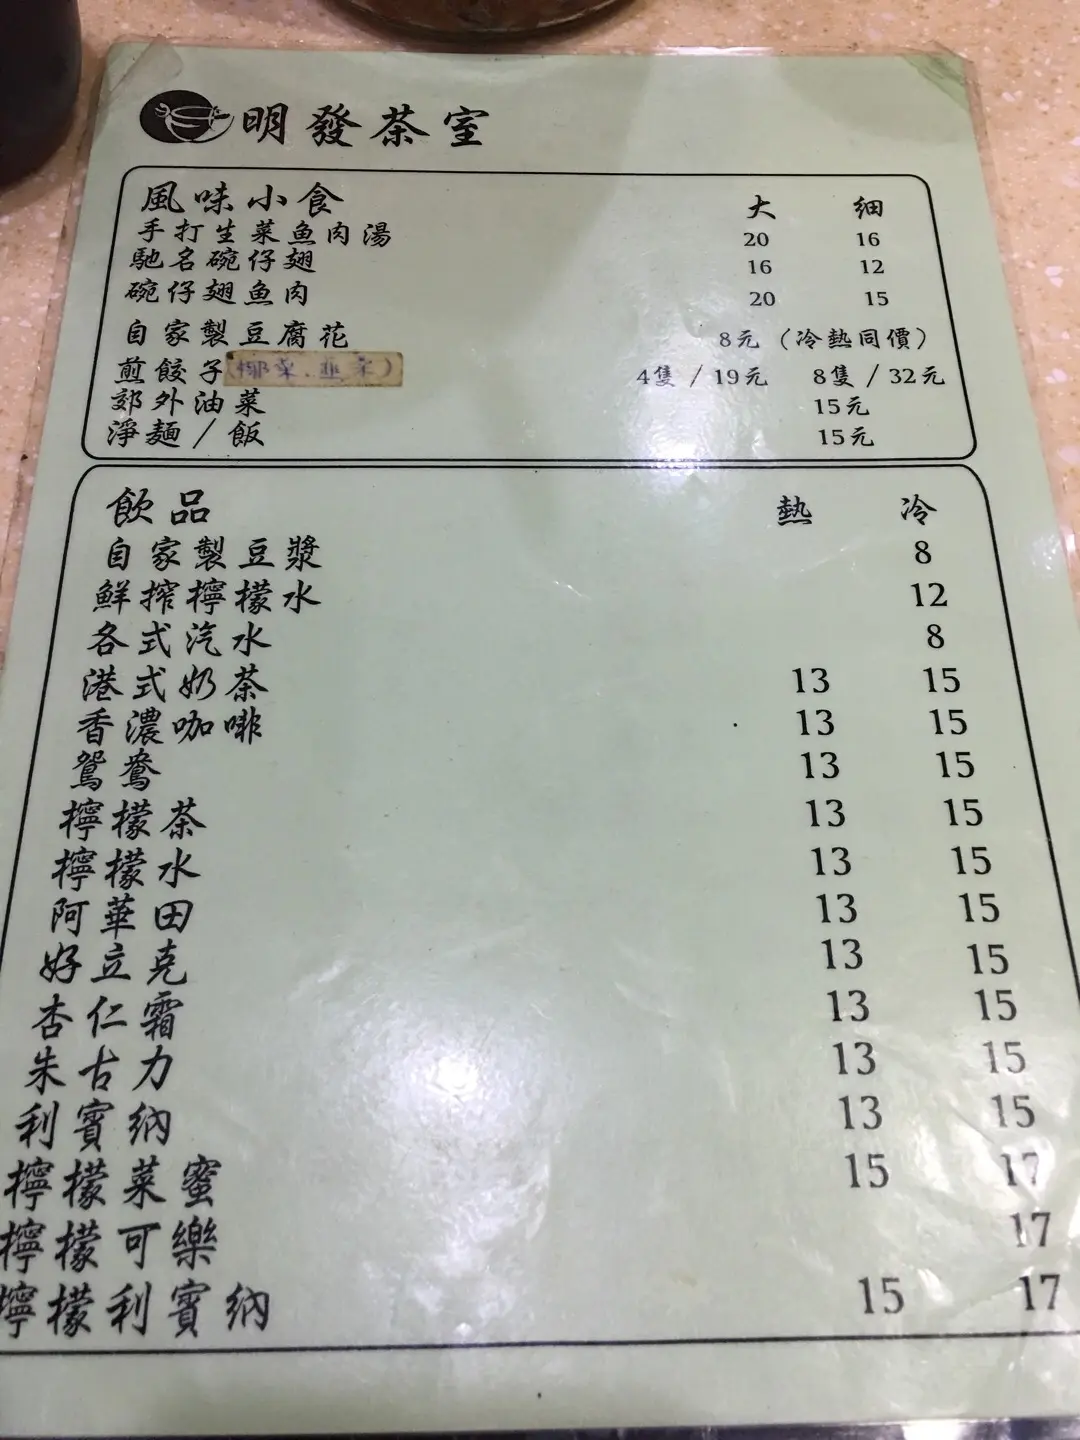 明發茶室
風味小食 大 細
手打生菜魚肉湯 20 16
馳名碗仔翅 16 12
碗仔翅魚肉 20 15
自家製豆腐花 8元（冷熱同價）
煎餃子(椰菜.韭菜) 4隻/19元 8隻/32元
郊外油菜 15元
淨麵/飯 15元
飲品 熱 冷
自家製豆漿 8
鮮搾檸檬水 12
各式汽水 8
港式奶茶 13 15
香濃咖啡 13 15
鴛鴦 13 15
檸檬茶 13 15
檸檬水 13 15
阿華田 13 15
好立克 13 15
杏仁霜 13 15
朱古力 13 15
利賓納 13 15
檸檬菜蜜 15 17
檸檬可樂 17
檸檬利賓納 15 17